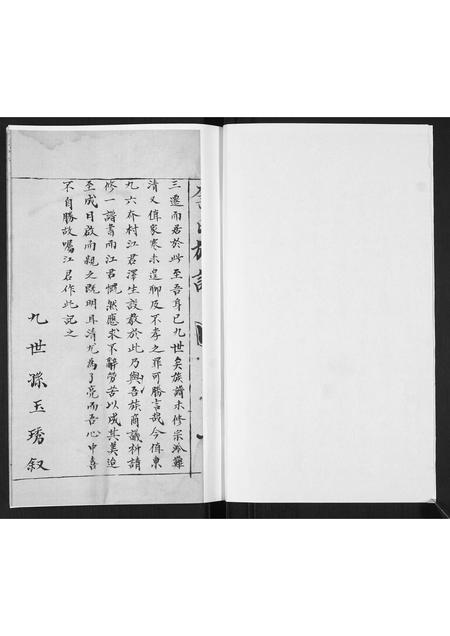 三遷而居於此至吾身已九世矣族譜未修宗派難
清又值家寒未遑聊及不孝之罪可勝言哉今值東
九六夼村江君澤生設教於此乃與吾族商議祈請
修一譜書而江君慨然應求不辭勞苦以成其美迨
至成日啟而観之既明且清尤為了亮而吾心中喜
不自勝故囑江君作此記之
九世孫玉琇叙